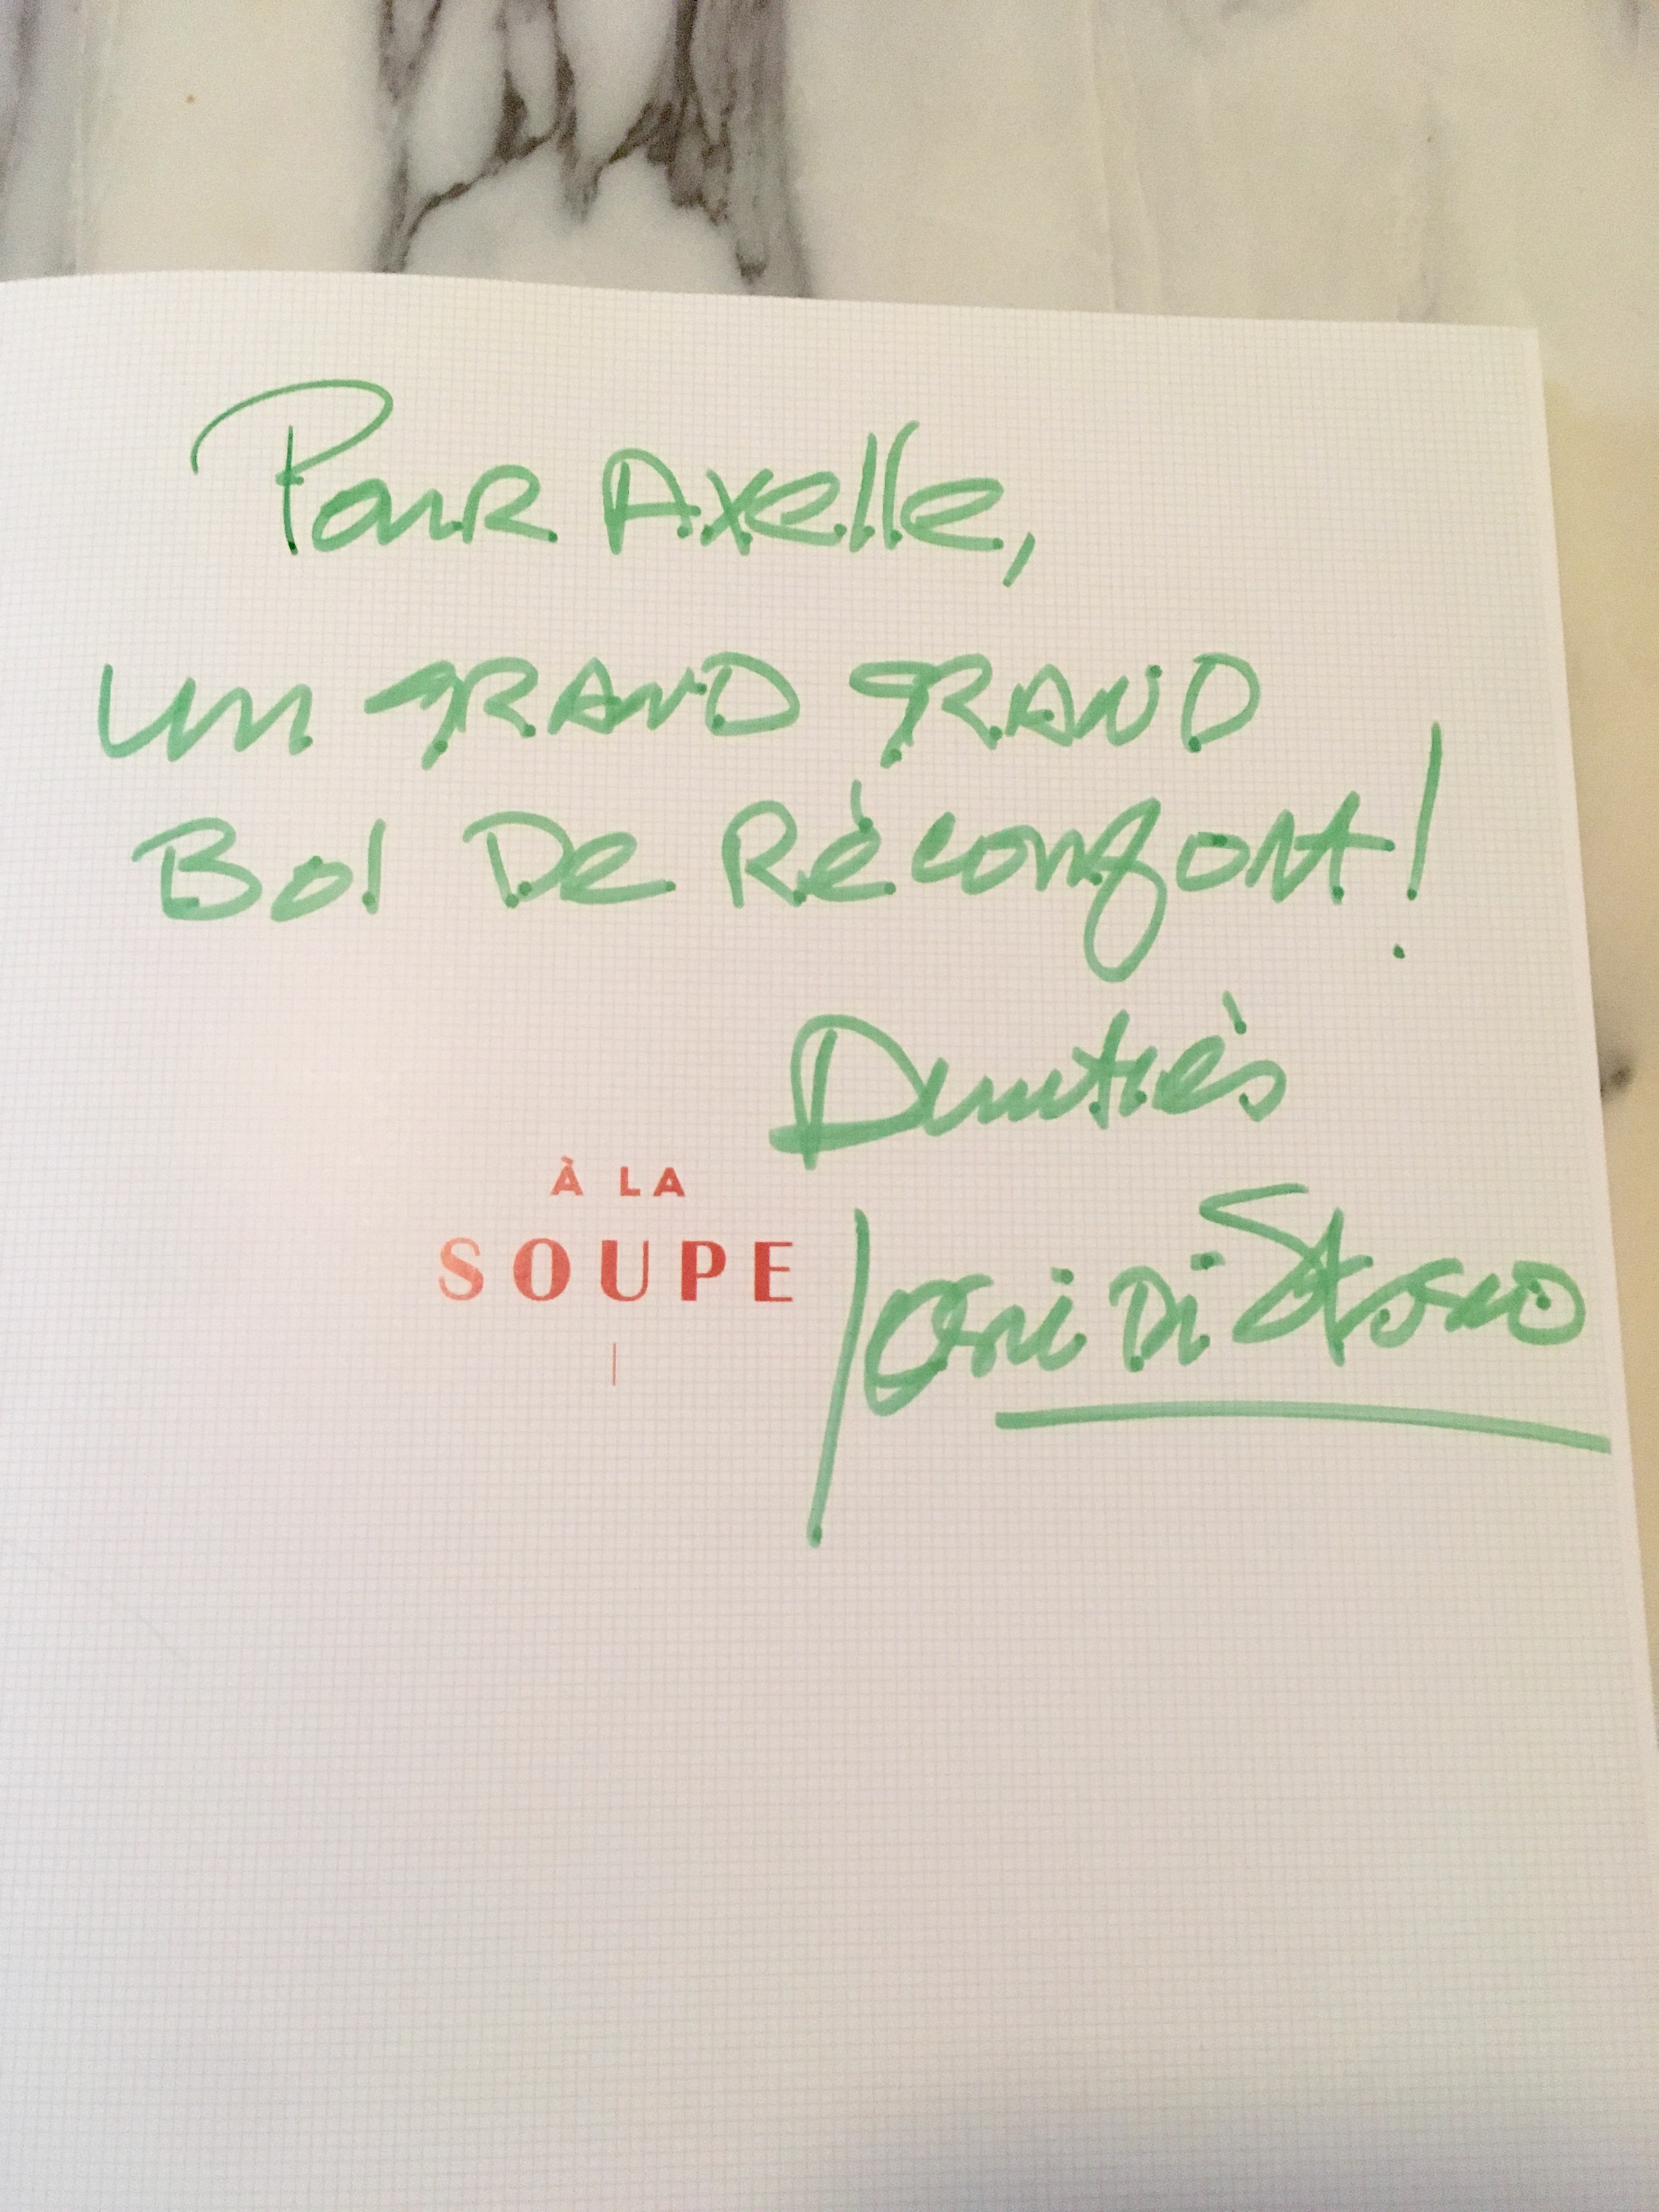 Pour Axelle,
un GRAND GRAND
Bol De Réconfort!
À LA
SOUPE
Di Stasio